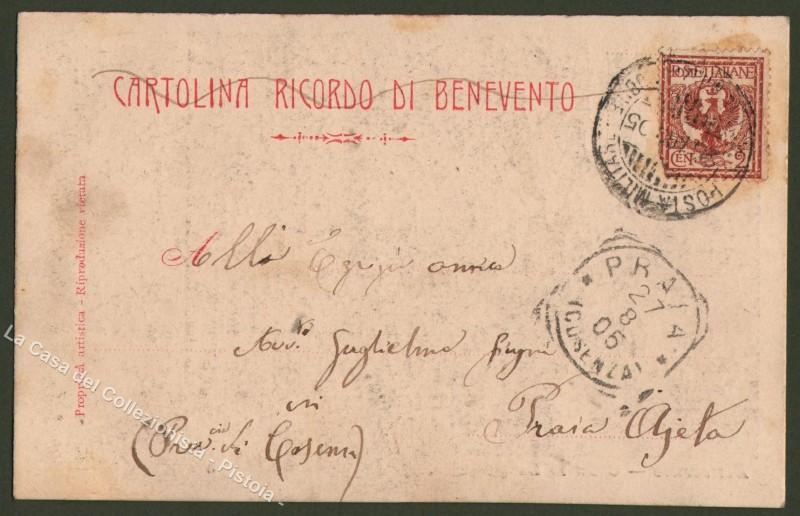 CARTOLINA RICORDO DI BENEVENTO
POSTE ITALIANE
CENT. 2
POSTA MILITARE
05
PRAIA
(COSENZA)
28
05
Alli Egregi amici
Avv.
Guglielmo
in
Praia Ajeta
(Prov.cia di Cosenza)
Proprietà artistica - Riproduzione vietata
La Casa del Collezionista - Pistoia -